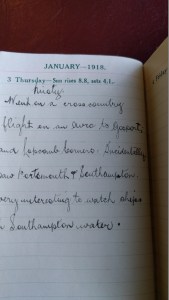 JANUARY—1918.
3 Thursday—Sun rises 8.8, sets 4.1.
Misty.
Went on a cross country
flight on an Avro to Gosport
and Lopcomb Corner. Incidentally
saw Portsmouth & Southampton.
very interesting to watch ships
in Southampton water.
4 Friday